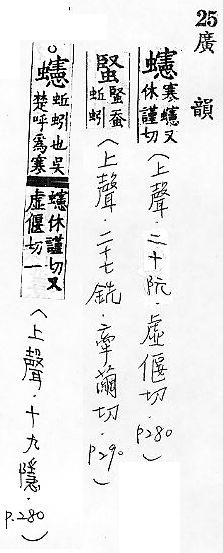 25 廣韻
䘆 寒䘆又休謹切 (上聲.二十阮.虛偃切.p280)
蜸 蜸蚕蚯蚓 (上聲.二十七銑.牽繭切.p290)
○䘆 蚯蚓也吳楚呼爲寒䘆休謹切又虛偃切一 (上聲.十九隱.p.280)